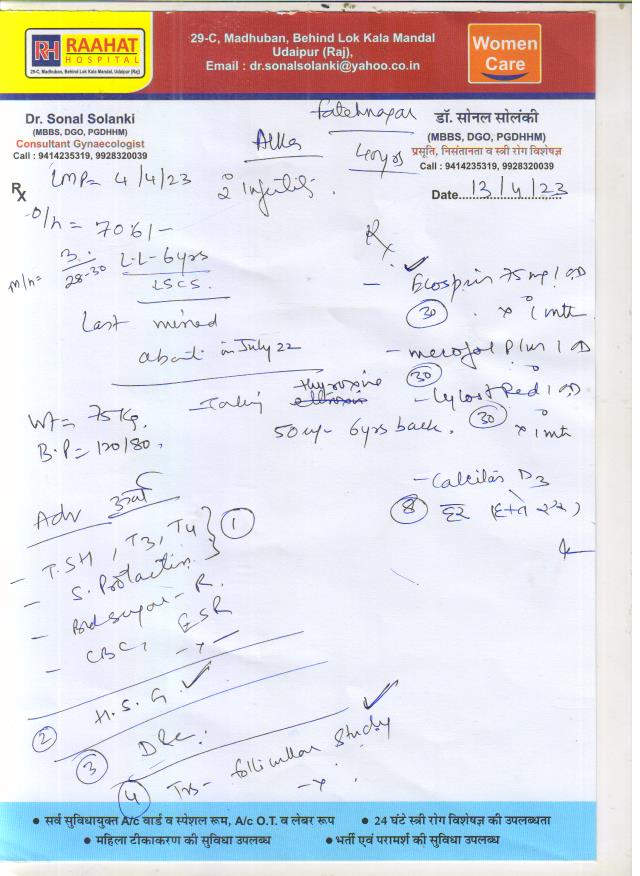 RH RAAHAT
HOSPITAL
29-C, Madhuban, Behind Lok Kala Mandal, Udaipur (Raj)
29-C, Madhuban, Behind Lok Kala Mandal
Udaipur (Raj),
Email : dr.sonalsolanki@yahoo.co.in
Women
Care
Dr. Sonal Solanki
(MBBS, DGO, PGDHHM)
Consultant Gynaecologist
Call : 9414235319, 9928320039
Fatehnagar
Alka
40yrs
डॉ. सोनल सोलंकी
(MBBS, DGO, PGDHHM)
प्रसूति, निसंतानता व स्त्री रोग विशेषज्ञ
Call : 9414235319, 9928320039
Date 13/4/23
Rx LMP= 4/4/23
2° Infertili
O/h = 
M/h= 3/28-30 L.L-6yrs
LSCS.
Last missed
abort. in July 22
Taking thyroxine
50 6yrs back.
Wt= 75 Kg.
B.P= 120/80,
Rx
- Ecosprin 75 mg 1 OD
(30) x 1 mth
- Plus 1 OD
(30)
- Red 1 OD
(30) x 1 mth
- D3
(8)
Adv
- T.SH, T3, T4 } (1)
- S. Prolactin
- Bld sugar - R.
- CBC, ESR
- x -
(2) H.S.G.
(3) D&C.
(4) Tvs - follicular study
- x -
• सर्व सुविधायुक्त A/c वार्ड व स्पेशल रूम, A/c O.T. व लेबर रूप • 24 घंटे स्त्री रोग विशेषज्ञ की उपलब्धता
• महिला टीकाकरण की सुविधा उपलब्ध • भर्ती एवं परामर्श की सुविधा उपलब्ध